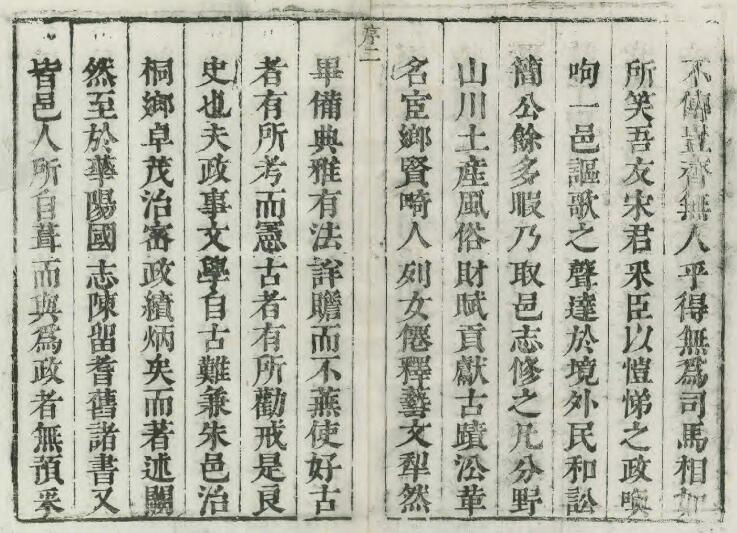 不傳豈齊無人乎得無爲司馬相如
所笑吾友宋君釆臣以愷悌之政噢
呴一邑謳歌之聲達於境外民和訟
簡公餘多暇乃取邑志修之凡分野
山川土産風俗財賦貢獻古蹟㳂革
名宦鄉賢畸人列女僊釋藝文犁然
序二
畢備典雅有法詳贍而不蕪使好古
者有所考而憲古者有所勸戒是良
史也夫政事文學自古難兼朱邑治
桐鄉卓茂治密政績炳矣而著述闕
然至於華陽國志陳留耆舊諸書又
皆邑人所自葺而與爲政者無預釆